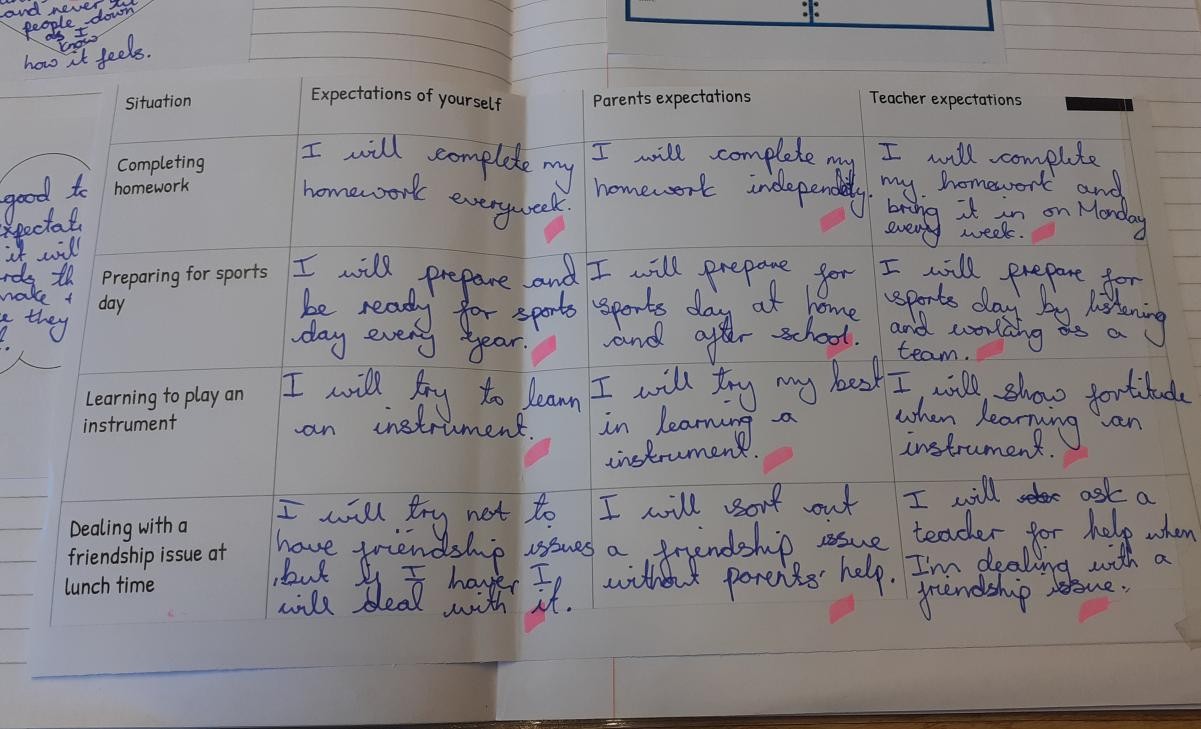 and never
people down
as I
know
how it feels.
good to
it will
make
they
Situation
Expectations of yourself
Parents expectations
Teacher expectations
Completing
homework
I will complete my
homework everyweek.
I will complete my
homework independetly.
I will complete
my homework and
bring it in on Monday
every week.
Preparing for sports
day
I will prepare and
be ready for sports
day every year.
I will prepare for
sports day at home
and after school.
I will prepare for
sports day by listening
and working as a
team.
Learning to play an
instrument
I will try to learn
an instrument.
I will try my best
in learning a
instrument.
I will show fortitude
when learning an
instrument.
Dealing with a
friendship issue at
lunch time
I will try not to
have friendship issues
,but if I have, I
will deal with it.
I will sort out
a friendship issue
without parents' help.
I will ask a
teacher for help when
I'm dealing with a
friendship issue.